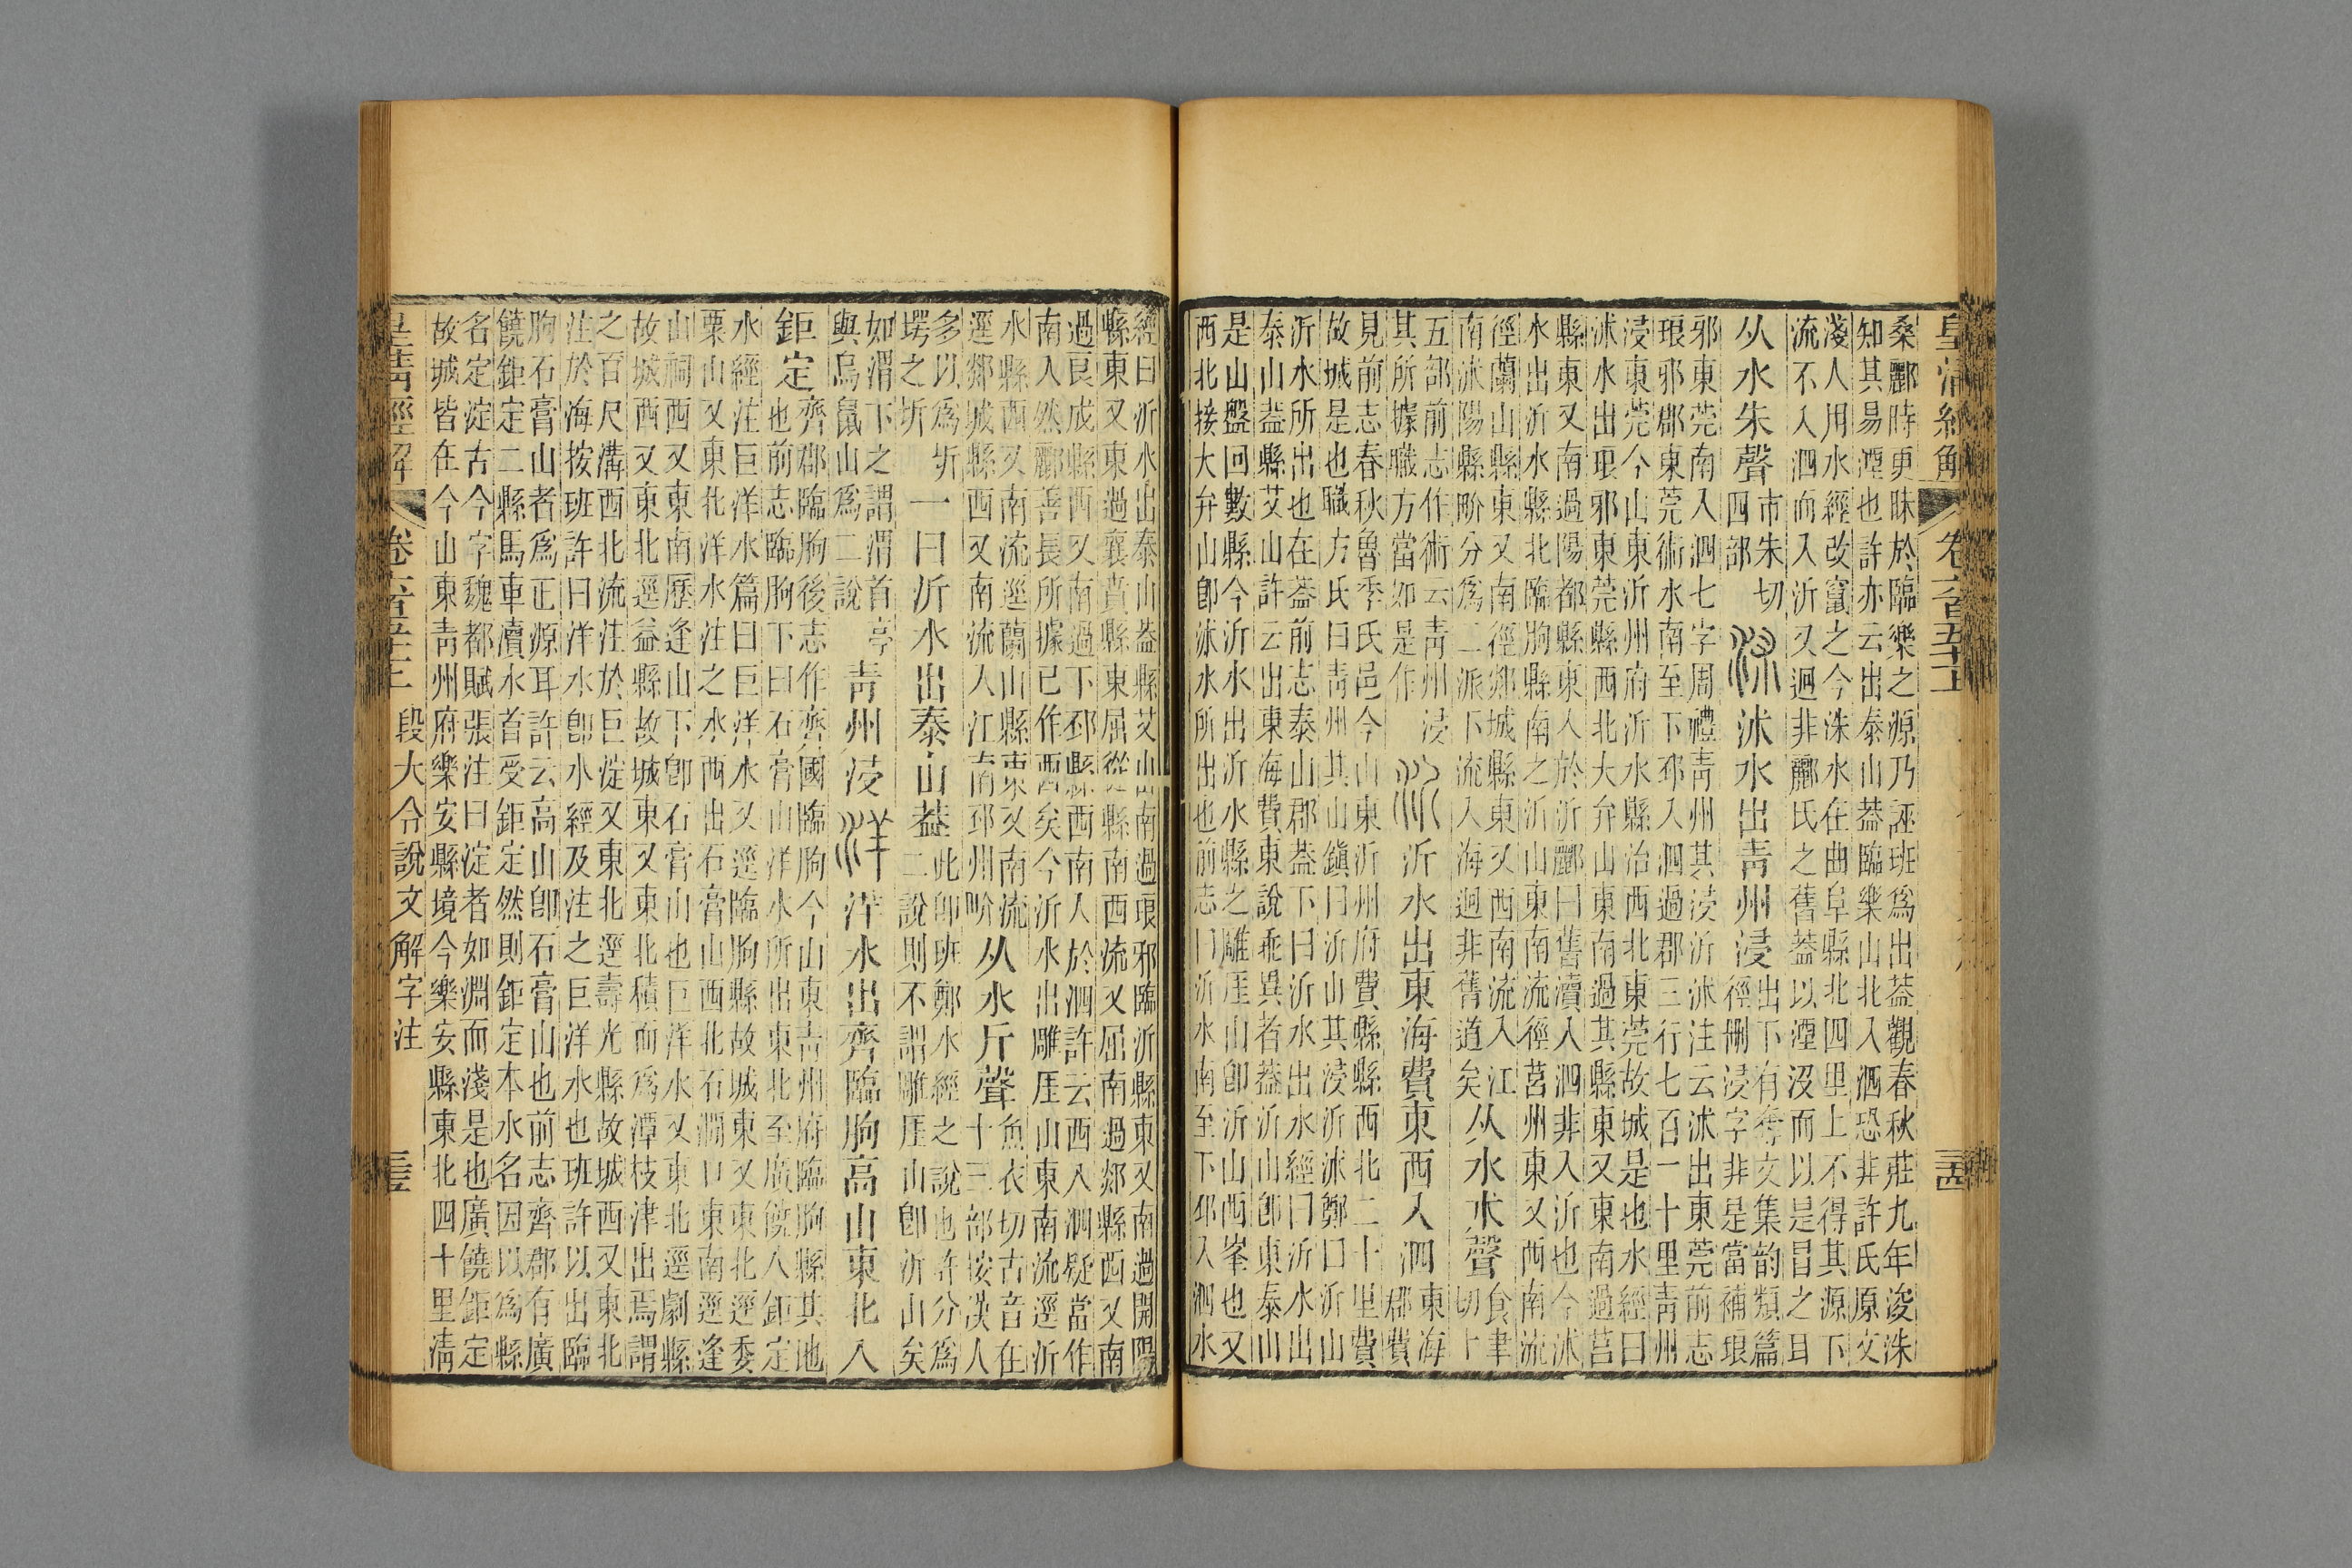 皇清經解 卷六百五十一 三四
桑酈時更昧於臨樂之源乃誣班爲出葢觀春秋莊九年浚洙
知其易湮也許亦云出泰山葢臨樂山北入泗恐非許氏原文
淺人用水經改竄之今洙水在曲阜縣北四里上不得其源下
流不入泗而入沂又迴非酈氏之舊葢以湮沒而以是冒之耳
从水朱聲 市朱切四部 沭 沭水出青州浸 出下有奪文集韵類篇徑刪浸字非是當補琅
邪東莞南入泗七字周禮青州其浸沂沭注云沭出東莞前志
琅邪郡東莞術水南至下邳入泗過郡三行七百一十里青州
浸東莞今山東沂州府沂水縣治西北東莞故城是也水經曰
沭水出琅邪東莞縣西北大弁山東南過其縣東又東南過莒
縣東又南過陽都縣東入於沂酈曰舊瀆入泗非入沂也今沭
水出沂水縣北臨朐縣南之沂山東南流徑莒州東又西南流
徑蘭山縣東又南徑郯城縣東又西南流入江南沭陽縣畍分爲二派下流入海迴非舊道矣 从水朮聲 食聿切十
五部前志作術云青州浸其所據職方當如是作 沂 沂水出東海費東西入泗 東海郡費
見前志春秋魯季氏邑今山東沂州府費縣縣西北二十里費
故城是也職方氏曰青州其山鎮曰沂山其浸沂沭鄭曰沂山
沂水所出也在葢前志泰山郡葢下曰沂水出水經曰沂水出
泰山葢縣艾山許云出東海費東說乖異者葢沂山卽東泰山
是山盤回數縣今沂水出沂水縣之雕厓山卽沂山西峯也又
西北接大弁山卽沭水所出也前志曰沂水南至下邳入泗水
經曰沂水出泰山葢縣艾山南過琅邪臨沂縣東又南過開陽
縣東又東過襄賁縣東屈從縣南西流又屈南過郯縣西又南
過良成縣西又南過下邳縣西南入於泗許云西入泗疑當作
南入然酈善長所據已作西矣今沂水出雕厓山東南流逕沂
水縣西又南流逕蘭山縣東又南流逕郯城縣西又南流入江南邳州畍 从水斤聲 魚衣切古音在十三部按漢人
多以爲圻堮之圻 一曰沂水出泰山葢 此卽班鄭水經之說也許分爲二說則不謂雕厓山卽沂山矣
如渭下之謂渭首亭與鳥鼠山爲二說 青州浸 洋 洋水出齊臨朐高山東北入
鉅定 齊郡臨朐後志作齊國臨朐今山東青州府臨朐縣其地也前志臨朐下曰石膏山洋水所出東北至廣饒入鉅定
水經注巨洋水篇曰巨洋水又逕臨朐縣故城東又東北逕委
粟山又東北洋水注之水西出石膏山西北石澗口東南逕逢
山祠西又東南歷逢山下卽石膏山也巨洋水又東北逕劇縣
故城西又東北逕益縣故城東又東北積而爲潭枝津出焉謂
之百尺溝西北流注於巨淀又東北逕壽光縣故城西又東北
注於海按班許曰洋水卽水經及注之巨洋水也班許以出臨
朐石膏山者爲正源耳許云高山卽石膏山也前志齊郡有廣
饒鉅定二縣馬車瀆水首受鉅定然則鉅定本水名因以爲縣
名定淀古今字魏都賦張注曰淀者如淵而淺是也廣饒鉅定
故城皆在今山東青州府樂安縣境今樂安縣東北四十里淸
皇清經解 卷六百五十一 段大令說文解字注 三五